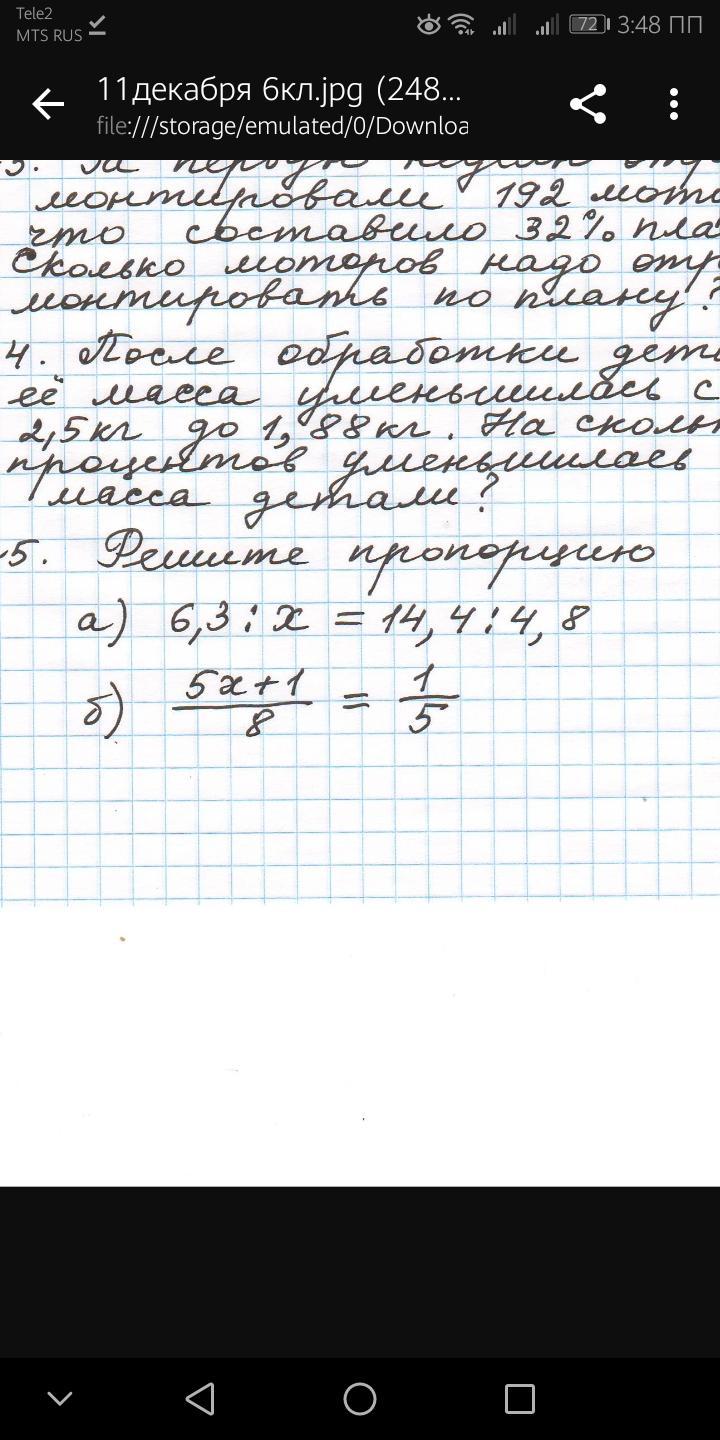 Tele2
MTS RUS
72 3:48 ПП
11декабря 6кл.jpg (248...
file:///storage/emulated/0/Downloa
3. За первую
монтировали 192 мото
что составило 32% пла
Сколько моторов надо отр
монтировать по плану?
4. После обработки дета
её масса уменьшилась с
2,5кг до 1,88кг. На сколь
процентов уменьшилась
масса детали?
5. Решите пропорцию
а) 6,3 : x = 14,4 : 4,8
б) (5x+1)/8 = 1/5